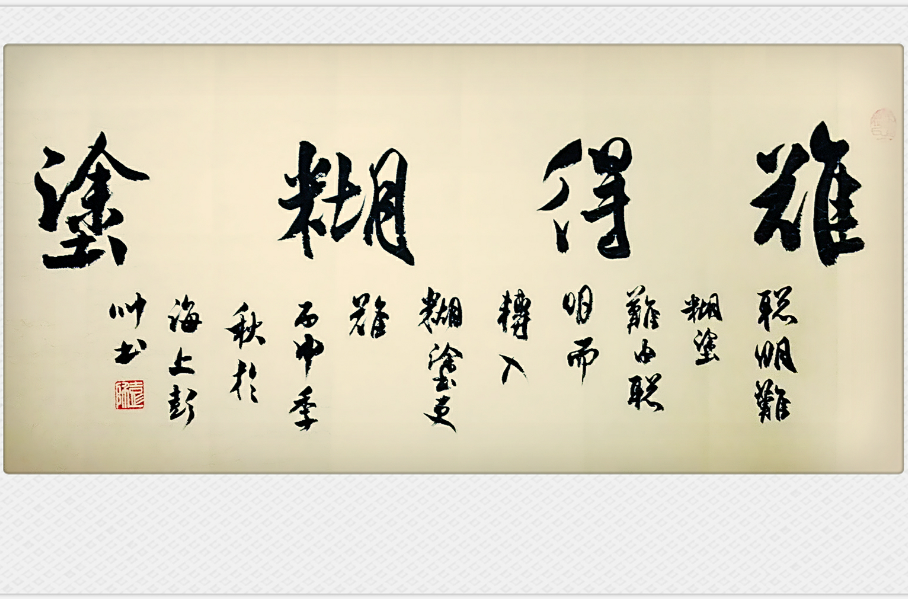 難得糊塗
聪明難
糊塗
難由聪
明而
轉入
糊塗更
難
丙申季
秋於
海上彭
书